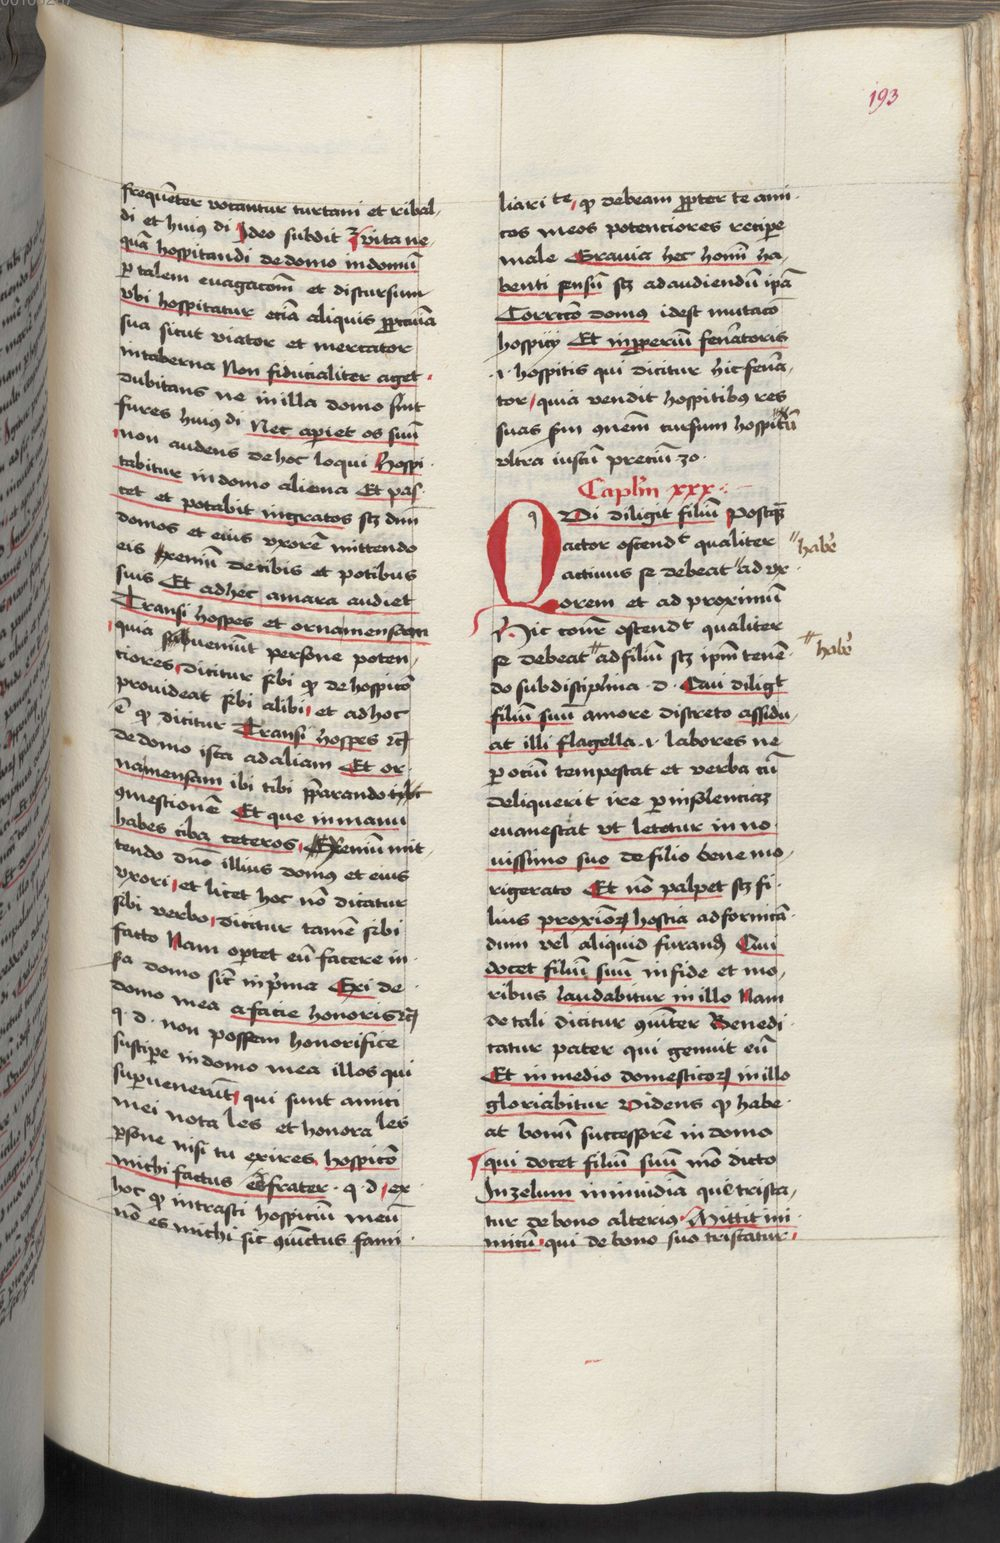 193
frequēter vocantur turtani et ribal
di et huiꝰ di Ideo subdit Vita ne
quā hospitandi de domo in domū
ꝑ talem euagacōm et discursum
vbi hospitatur eciā aliquis
sua sicut viator et mercator
in taberna Non fiducialiter aget
dubitans ne in illa domo sint
fures huiꝰ di Nec apiet os suū
non audens de hoc loqui Hospi
tabitur in domo aliena Et pas
cet et potabit ingratos scꝫ dnm
domos et eius vxorē mittendo
eis exeniū de cibis et potibus
suis Et ad hec amara audiet
Transi hospes et orna mensam
quia ueniūt persone poten
ciores dicitur sibi ꝙ de hospicō
prouideat sibi alibi et ad hoc
ē ꝙ dicitur Transi hospes
de domo ista ad aliam Et or
na mensam ibi tibi p̄parando
ꝯmestionē Et que in manu
habes ciba ceteros Exeniū mit
tendo dnō illius domꝰ et eius
vxori et licet hoc nō dicatur
sibi verbo dicitur tamē sibi
facto Nam oꝑtet eū facere in
domo sic̄ Exi de
domo mea a facie honoris
q. d. non possem honorifice
suscipe in domo mea illos qui
supuenerūt qui sunt amici
mei nota les et honora les
ꝑsone nisi tu exires hospicō
michi factus frater q. d. ex
hoc ꝙ intrasti hospiciū meū
nō es michi sic ꝯiūctus fami
liari te ꝙ debeam ꝓpter te ami
cos meos potenciores recipe
male Grauia hec homī ha
benti sensū scꝫ ad audiendū ipā
Correcō domus idest mutacō
hospicij Et inproperiū feneratoris
.i. hospitis qui dicitur hic fenera
tor quia vendit hospitibꝰ res
suas
vltra iustū preciū
Caplm xxx
Qvi diligit filiū Postqꝫ
actor ostend't qualiter
actiuus se debeat ad vx
habere
orem et ad proximū
Hic ostend't qualiter
se debeat ad filiū scꝫ ipm tenē
habere
do sub disciplina d. Qui diligit
filiū suū amore discreto assidu
at illi flagella .i. labores ne
ꝑ ociū tempestat et verba cū
deliquerit ire ꝑ insolenciaꝫ
euanescat vt letetur in no
uissimo suo de filio bene mo
rigerato Et nō palpet scꝫ fi
lius proximoꝝ hostia ad fornicā
dum vel aliquid furand' Qui
docet filiū suū in fide et mo
ribus laudabitur in illo Nam
de tali dicitur Benedi
catur pater qui genuit eū
Et in medio domesticoꝝ in illo
gloriabitur Videns ꝙ habe
at bonū successorē in domo
qui docet filiū suū mō dicto
In zelum in inuidiā qui trista
tur de bono alteriꝰ Mittit ini
micū qui de bono suo tristatur